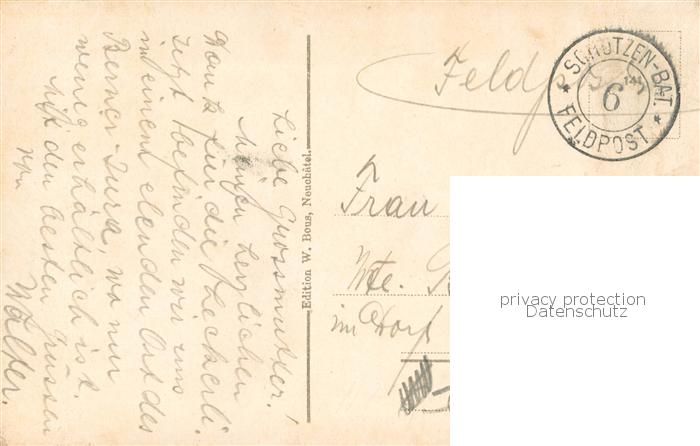 Liebe Grossmutter!
Meinen herzlichen
Dank für die Leckerli.
Jetzt befinden wir uns
in einem elenden Ort des
Berner-Jura, wo nur
wenig erhältlich ist.
Mit den besten Grüssen
Walter.
Edition W. Bous, Neuchâtel.
Feldp
SCHÜTZEN-BAT.
6
FELDPOST
Frau
Wte.
im Dorf
privacy protection
Datenschutz